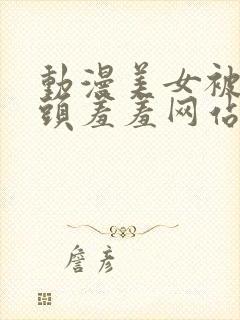 動漫美女被
頭羞羞网佔
詹彦